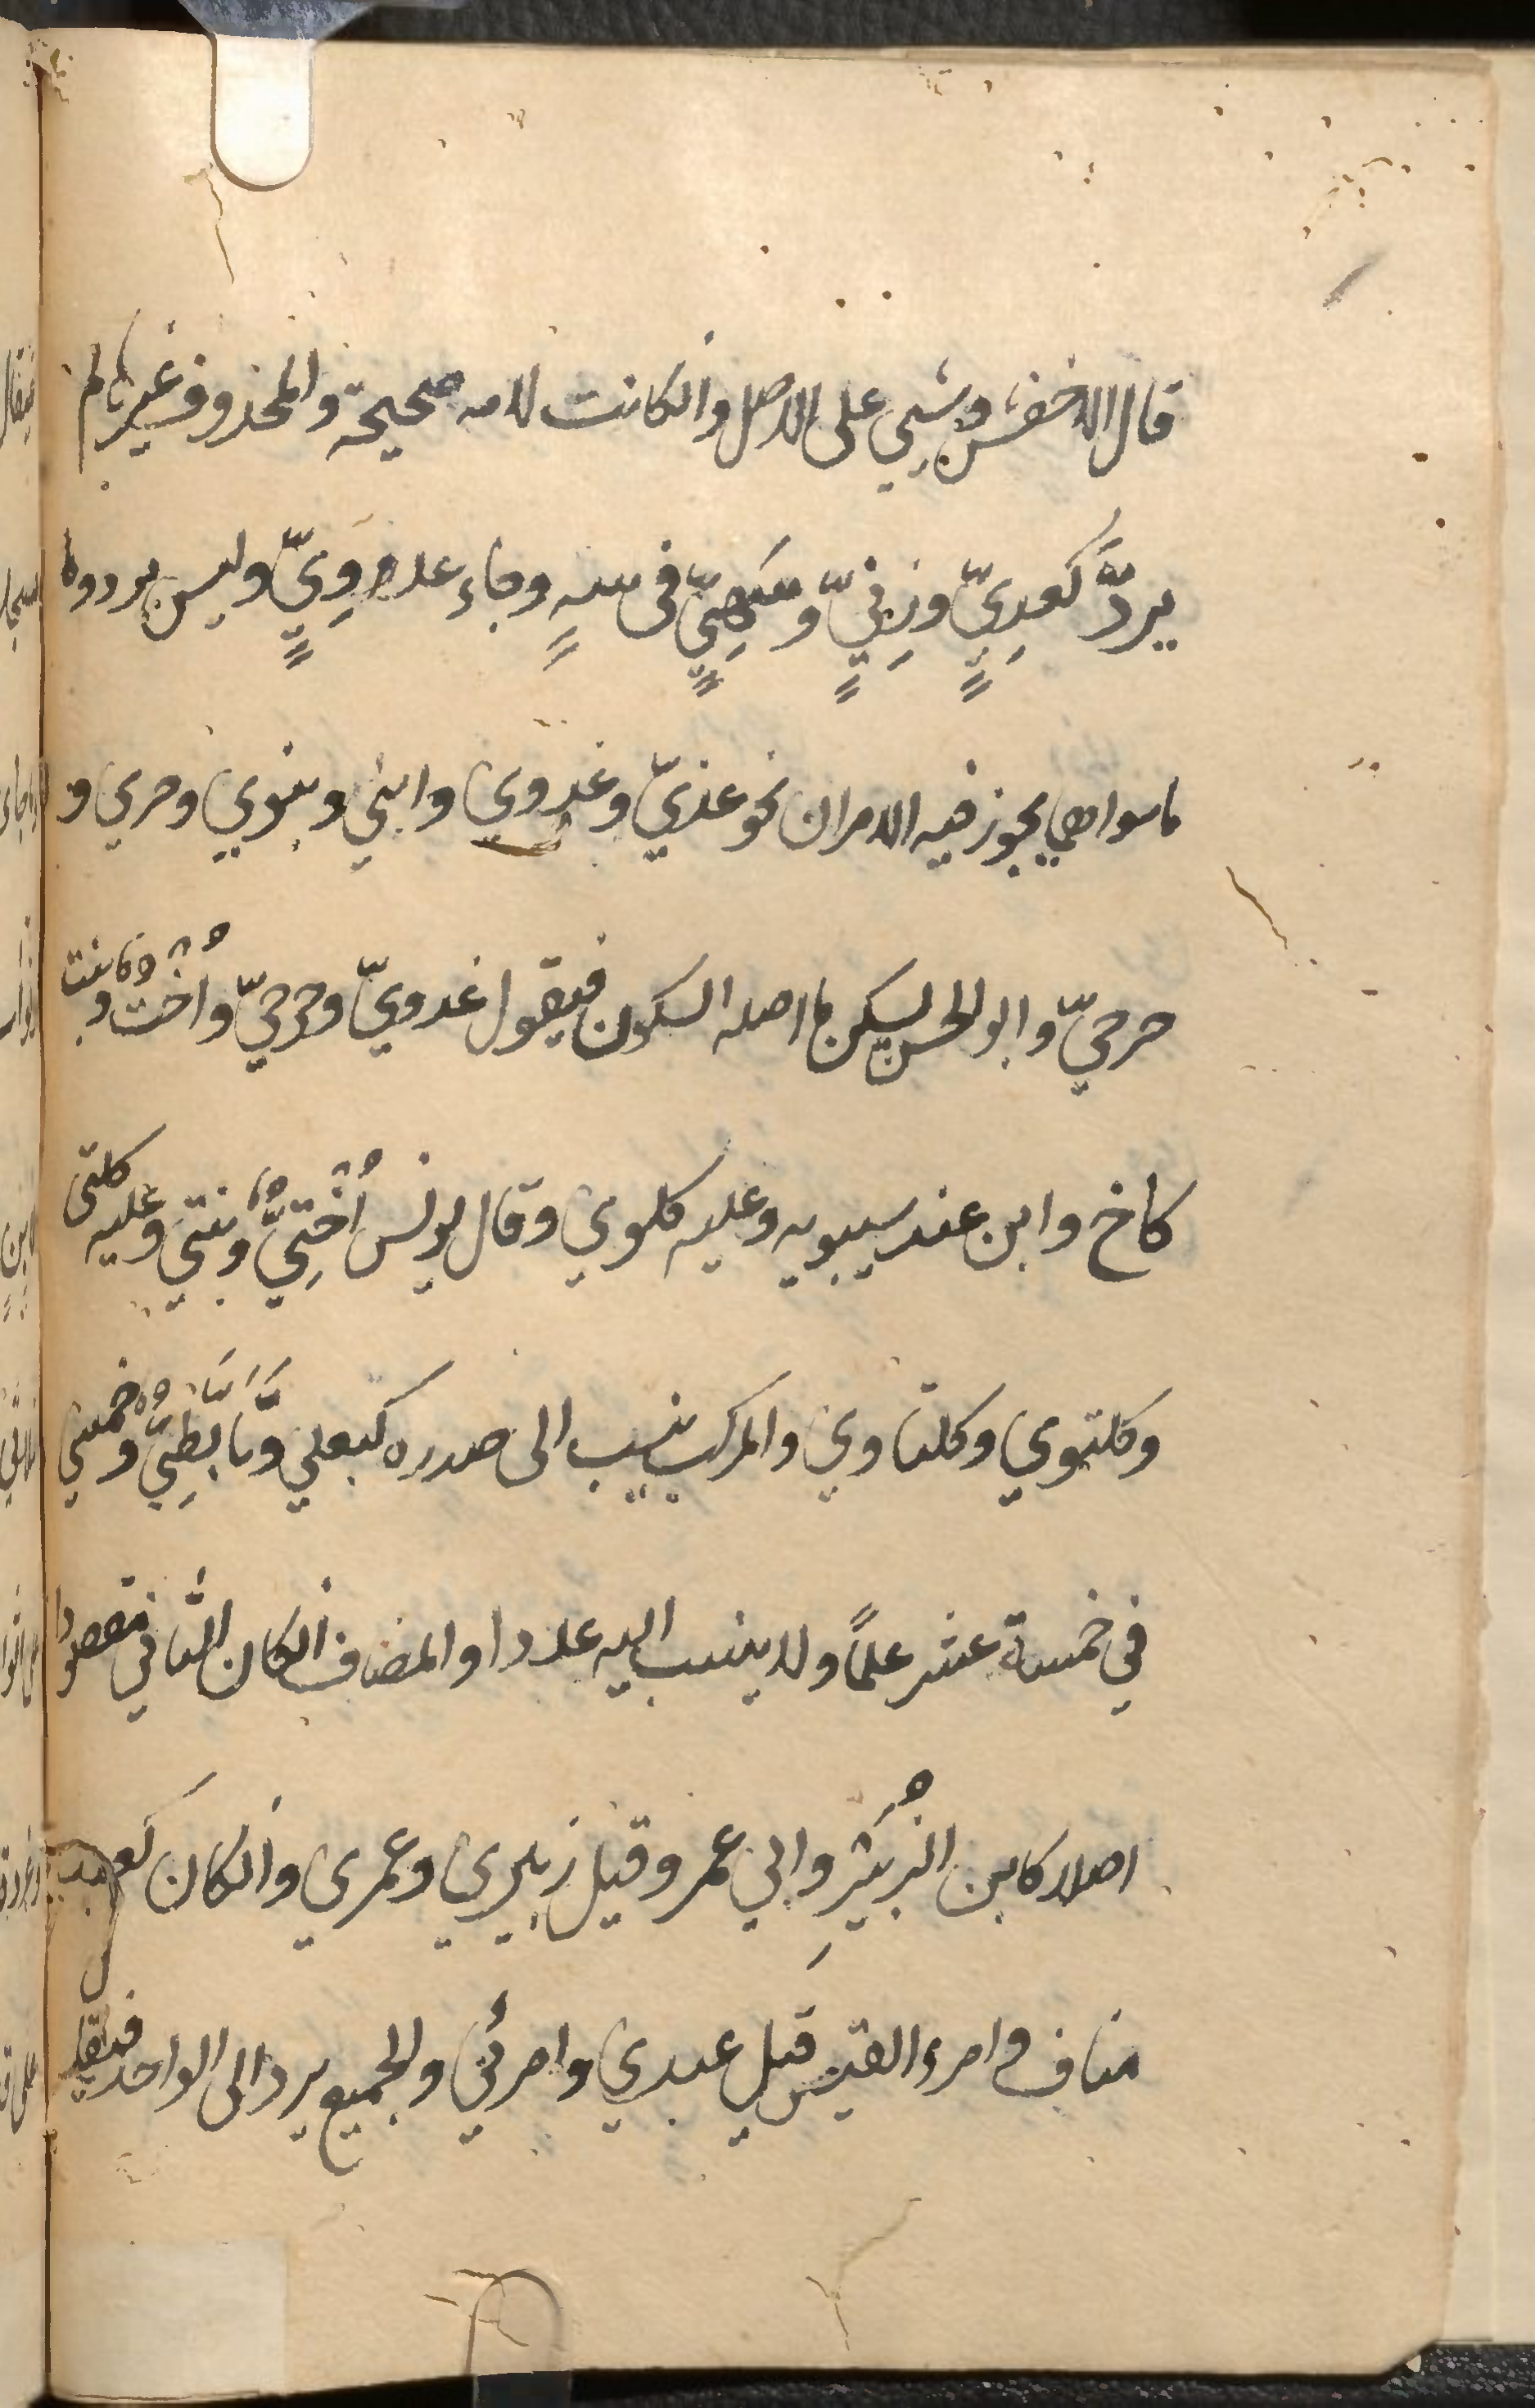 قال الاخفش وشيي على الاصل وانكانت لامه صحيحة والمحذوف غيرها لم
يردَّ كعِدِيٍّ وزِنِيٍّ وسَهِيٍّ فى سهٍ وجاء عدوِيٍّ وليس بردوما
ما سواهما يجوز فيه الامران نحو غديّ وغدوي وابني وبنوي وحري و
حرحيّ وابو الحسن يسكن ما اصله السكون فيقول غدويّ وحرحيّ وأُخت وبنت
كاخ وابن عند سيبويه وعليه كلوي وقال يونس أُختِيٌّ وبنتي وعليه كلتى
وكلتوي وكلتاوي والمركب ينسب الى صدره كبعلي وتَأَبَّطِيٌّ وخمسي
في خمسة عشر علمًا ولا ينسب اليه عددا والمضاف انكان الثاني مقصودا
اصلا كابن الزُبَيْرِ وابي عمرو قيل زبيري وعمري وانكان كعبد
مناف وامرء القيس قيل عبدي وامرئي والجميع يرد الى الواحد فيقال